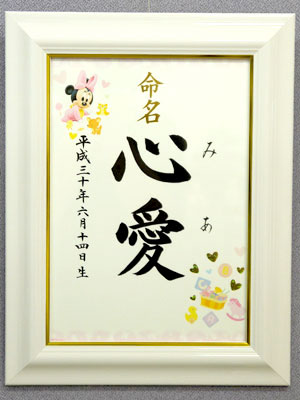 命名
みあ
心愛
平成三十年六月十四日生